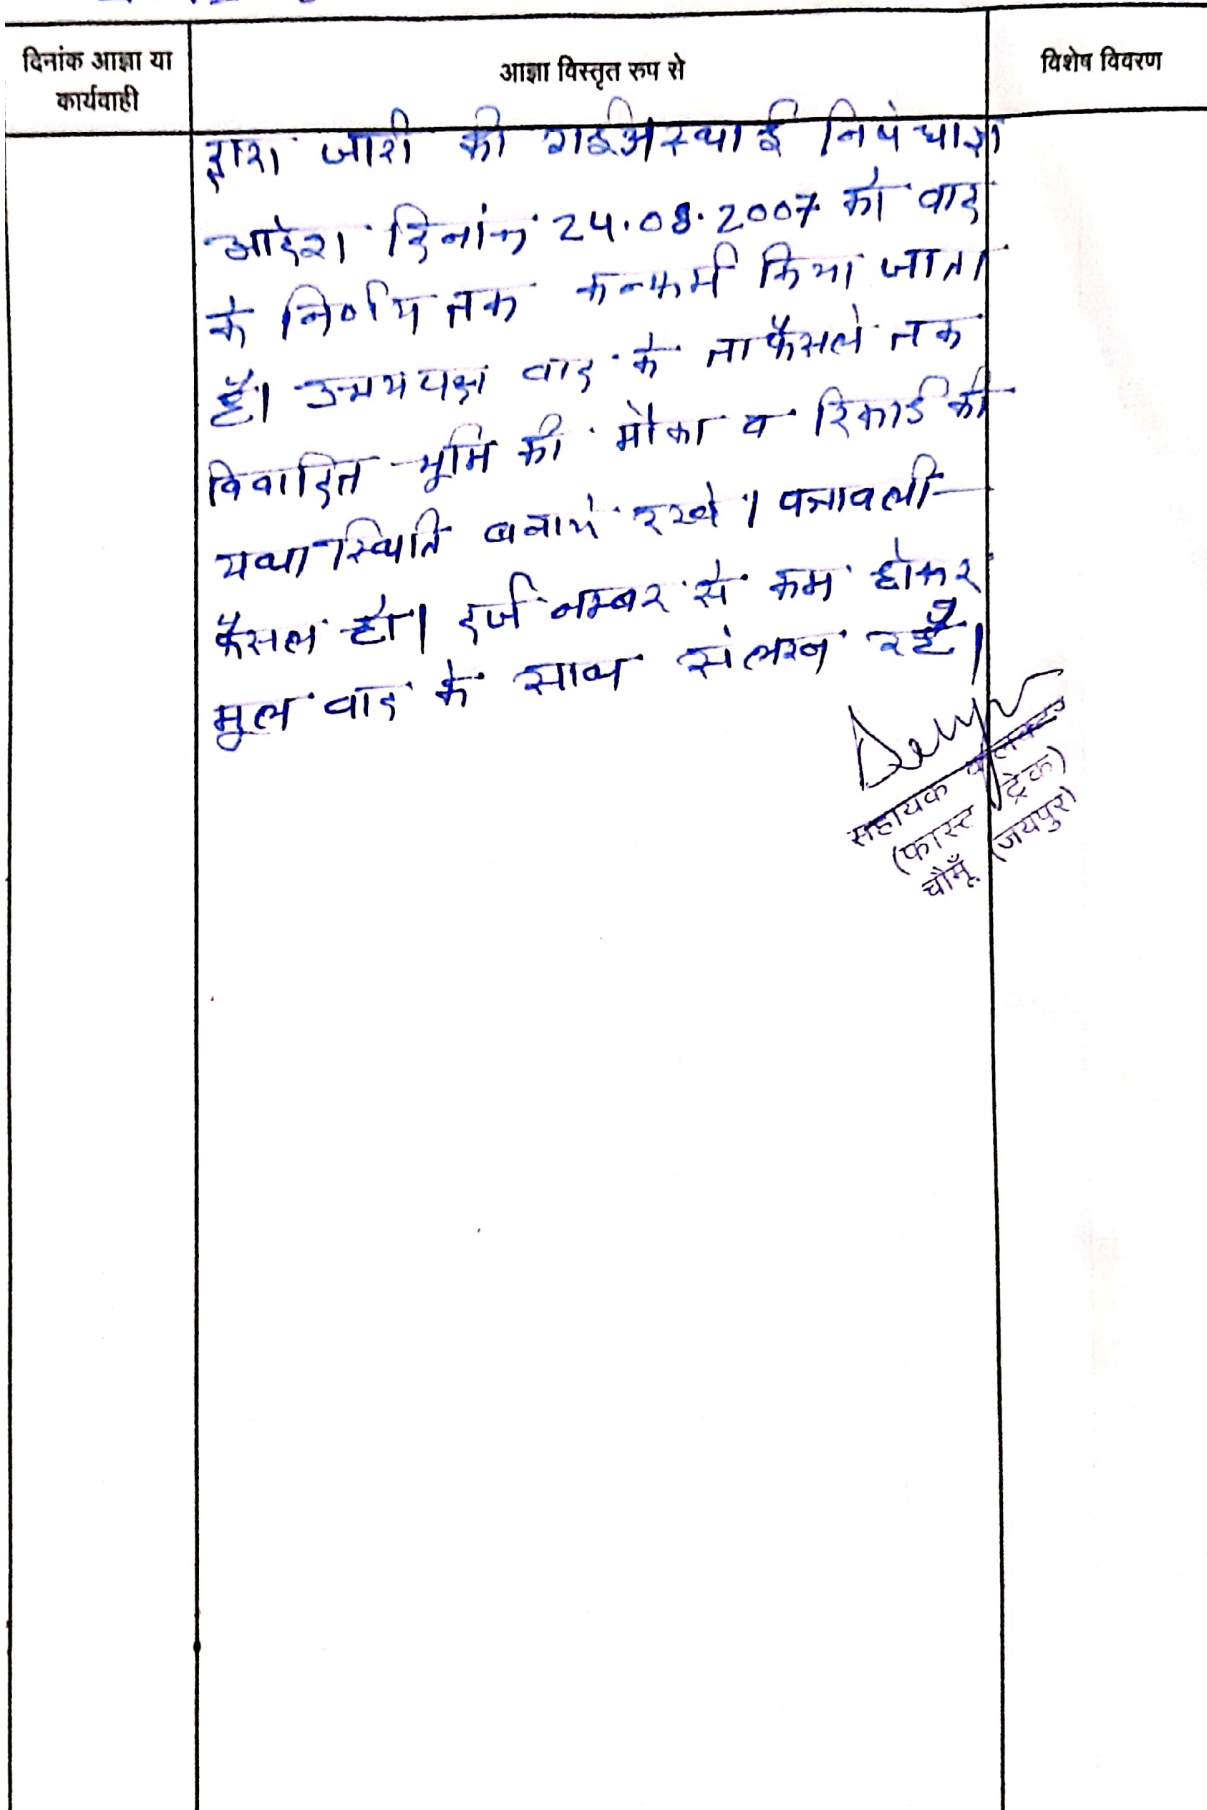 दिनांक आज्ञा या
कार्यवाही
आज्ञा विस्तृत रुप से
विशेष विवरण
द्वारा जारी की गई अस्थाई निषेधाज्ञा
आदेश दिनांक 24.08.2007 को वाद
के निर्णय तक कन्फर्म किया जाता
है। उभयपक्ष वाद के ता फैसले तक
विवादित भूमि की मौका व रिकार्ड की
यथास्थिति बनाये रखे। पत्रावली
फैसल हो। दर्ज नम्बर से कम होकर
मूल वाद के साथ संलग्न रहे।
सहायक कलक्टर
(फास्ट ट्रेक)
चौमूँ (जयपुर)